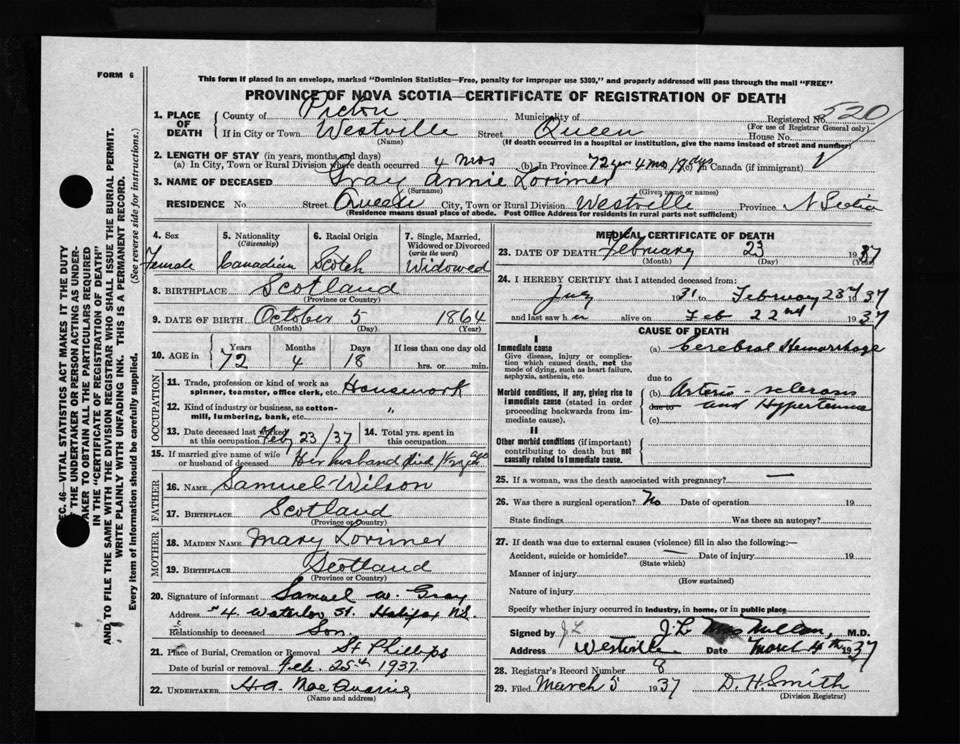 FORM 6
This form if placed in an envelope, marked "Dominion Statistics—Free, penalty for improper use $300," and properly addressed will pass through the mail "FREE"
PROVINCE OF NOVA SCOTIA—CERTIFICATE OF REGISTRATION OF DEATH
520
1. PLACE OF DEATH
County of Pictou Municipality of Registered No.
(For use of Registrar General only)
If in City or Town Westville Street Queen House No.
(Name) (If death occurred in a hospital or institution, give the name instead of street and number)
2. LENGTH OF STAY (in years, months and days)
(a) In City, Town or Rural Division where death occurred 4 mos (b) In Province 72 yr 4 mo 18 dys (c) In Canada (if immigrant)
3. NAME OF DECEASED Gray Annie Lorimer
(Surname) (Given name or names)
RESIDENCE No. Street Queen City, Town or Rural Division Westville Province N Scotia
(Residence means usual place of abode. Post Office Address for residents in rural parts not sufficient)
4. Sex Female
5. Nationality (Citizenship) Canadian
6. Racial Origin Scotch
7. Single, Married, Widowed or Divorced (write the word) Widowed
8. BIRTHPLACE Scotland
(Province or Country)
9. DATE OF BIRTH October 5 1864
(Month) (Day) (Year)
10. AGE in Years Months Days If less than one day old
72 4 18 hrs. or min.
OCCUPATION
11. Trade, profession or kind of work as spinner, teamster, office clerk, etc. Housework
12. Kind of industry or business, as cotton-mill, lumbering, bank, etc. "
13. Date deceased last worked at this occupation Feby 23/37
14. Total yrs. spent in this occupation
15. If married give name of wife or husband of deceased Her husband died 1 yr ago
FATHER
16. NAME Samuel Wilson
17. BIRTHPLACE Scotland
(Province or Country)
MOTHER
18. MAIDEN NAME Mary Lorimer
19. BIRTHPLACE Scotland
(Province or Country)
20. Signature of informant Samuel W. Gray
Address 4 Waterloo St. Halifax NS.
Relationship to deceased Son.
21. Place of Burial, Cremation or Removal St Phillips
Date of burial or removal Feb. 25th 1937.
22. UNDERTAKER
(Name and address)
MEDICAL CERTIFICATE OF DEATH
23. DATE OF DEATH February 23 1937
(Month) (Day) (Year)
24. I HEREBY CERTIFY that I attended deceased from:
1931 to February 23rd 1937
and last saw her alive on Feb 22nd 1937
CAUSE OF DEATH
I
Immediate cause
Give disease, injury or complication which caused death, not the mode of dying, such as heart failure, asphyxia, asthenia, etc.
(a) Cerebral Hemorrhage
due to
Morbid conditions, if any, giving rise to immediate cause (stated in order proceeding backwards from immediate cause).
(b) Arterio-sclerosis
due to and Hypertension
(c)
II
Other morbid conditions (if important) contributing to death but not causally related to immediate cause.
25. If a woman, was the death associated with pregnancy? —
26. Was there a surgical operation? No Date of operation 19
State findings Was there an autopsy?
27. If death was due to external causes (violence) fill in also the following:—
Accident, suicide or homicide? — Date of injury 19
(State which)
Manner of injury
(How sustained)
Nature of injury
Specify whether injury occurred in industry, in home, or in public place
Signed by J L J. L. MacMillan, M.D.
Address Westville Date March 4th 1937
28. Registrar's Record Number 8
29. Filed March 5 1937 D. H. Smith
(Division Registrar)
SEC. 46—VITAL STATISTICS ACT MAKES IT THE DUTY
OF THE UNDERTAKER OR PERSON ACTING AS UNDER-
TAKER TO OBTAIN ALL THE PARTICULARS REQUIRED
IN THE "CERTIFICATE OF REGISTRATION OF DEATH"
AND TO FILE THE SAME WITH THE DIVISION REGISTRAR WHO SHALL ISSUE THE BURIAL PERMIT.
WRITE PLAINLY WITH UNFADING INK. THIS IS A PERMANENT RECORD.
Every item of information should be carefully supplied. (See reverse side for instructions.)